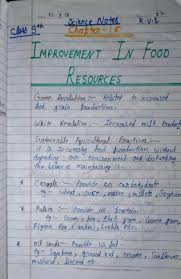 Science Notes
R.V.S.
Class 9th
Chapter - 15
IMPROVEMENT IN FOOD
RESOURCES
Green Revolution :- Related to increased
food grain production.
White Revolution :- Increased milk product
Sustainable Agricultural Practices :-
It is increasing food production without
degrading our environment and disturbing
the balances maintaining it.
Cereals - Provide us carbohydrate.
eg - wheat, rice, maize, millets, Sorghum
Pulses - Provide us protein
Pigeon pea
Oil seeds - Provide us fat
eg - Soyabean, ground nut, sesame, sunflower,
mustard, linseed etc